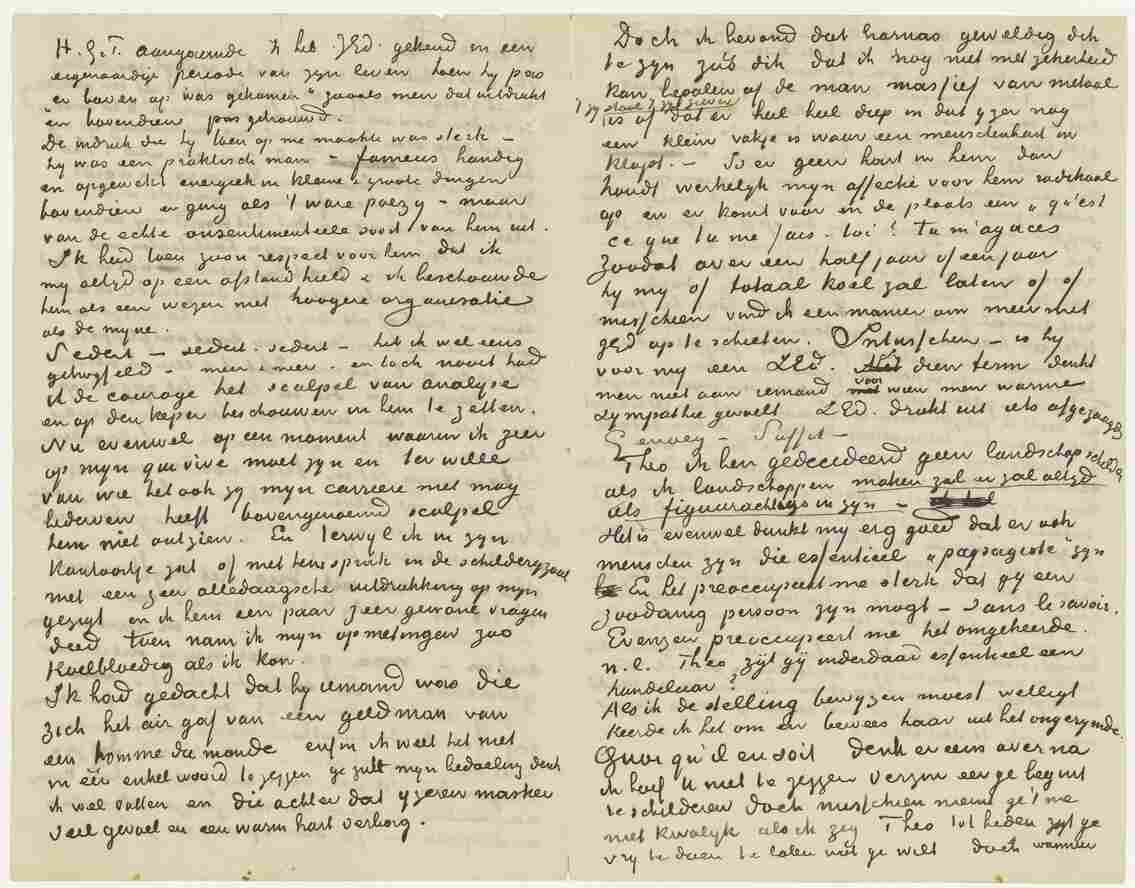 H.G.T. aangaande ik heb ZEd. gekend in een
eigenaardige periode van zyn leven toen hy pas
"er boven op was gekomen" zooals men dat uitdrukt
en bovendien pas getrouwd.
De indruk die hy toen op me maakte was sterk –
hy was een praktisch man – fameus handig
en opgewekt energiek in kleine & groote dingen
bovendien er ging als 't ware poezy – maar
van de echte onsentimenteele soort van hem uit.
Ik had toen zoon respect voor hem dat ik
my altyd op een afstand hield & ik beschouwde
hem als een wezen met hoogere organisatie
als de myne.
Sedert – sedert. sedert – heb ik wel eens
getwyfeld – meer & meer. en toch nooit had
ik de courage het scalpel van analyse
en op den keper beschouwen in hem te zetten.
Nu evenwel op een moment waarin ik zeer
op myn qui vive moet zyn en ter wille
van wie het ook zy myn carriere niet mag
bederven heeft bovengenoemd scalpel
hem niet ontzien. En terwyl ik in zyn
kantoortje zat of met hem sprak in de schilderyzaal
met een zeer alledaagsche uitdrukking op myn
gezigt en ik hem een paar zeer gewone vragen
deed toen nam ik myn opmetingen zoo
koelbloedig als ik kon.
Ik had gedacht dat hy iemand was die
zich het air gaf van een geldman van
een homme du monde enfin ik weet het niet
in één enkel woord te zeggen ge zult myn bedoeling denk
ik wel vatten en die achter dat yzeren masker
veel gevoel en een warm hart verborg.
Doch ik bevond dat harnas geweldig dik
te zyn zóó dik dat ik nog niet met zekerheid
kan bepalen of de man massief van metaal
't zy staal 't zy zilver
is of dat er heel heel diep in dat yzer nog
een klein vakje is waar een menschenhart in
klopt. – Is er geen hart in hem dan
houdt werkelyk myn affectie voor hem radikaal
op en er komt voor in de plaats een "qu'est
ce que tu me fais. toi? Tu m'agaces
Zoodat over een half jaar of een jaar
hy my of totaal koel zal laten of of
misschien vind ik een manier om meer met
ZEd op te schieten. Ontusschen – is hy
voor my een ZEd. dien term denkt
men niet aan iemand voor wien men warme
sympathie gevoelt ZEd. drukt uit iets afgezaagds
Genoeg – Suffit –
Theo ik ben gedecideerd geen landschapschilder
als ik landschappen maken zal er zal altyd
iets figuurachtigs in zyn –
Het is evenwel dunkt my erg goed dat er ook
menschen zyn die essentieel "paysagiste" zyn
En het preoccupeert me sterk dat gy een
zoodanig persoon zyn mogt – sans le savoir.
Evenzeer preoccupeert me het omgekeerde.
n.l. Theo zyt gy inderdaad essentieel een
handelaar?
Als ik de stelling bewyzen moest welligt
keerde ik het om en bewees haar uit het ongerymde.
Quoi qu'il en soit denk er eens over na
ik hoef U niet te zeggen verzin eer ge begint
te schilderen doch misschien neemt ge 't me
niet kwalyk als ik zeg Theo tot heden zyt ge
vry te doen te laten wat ge wilt doch wanneer